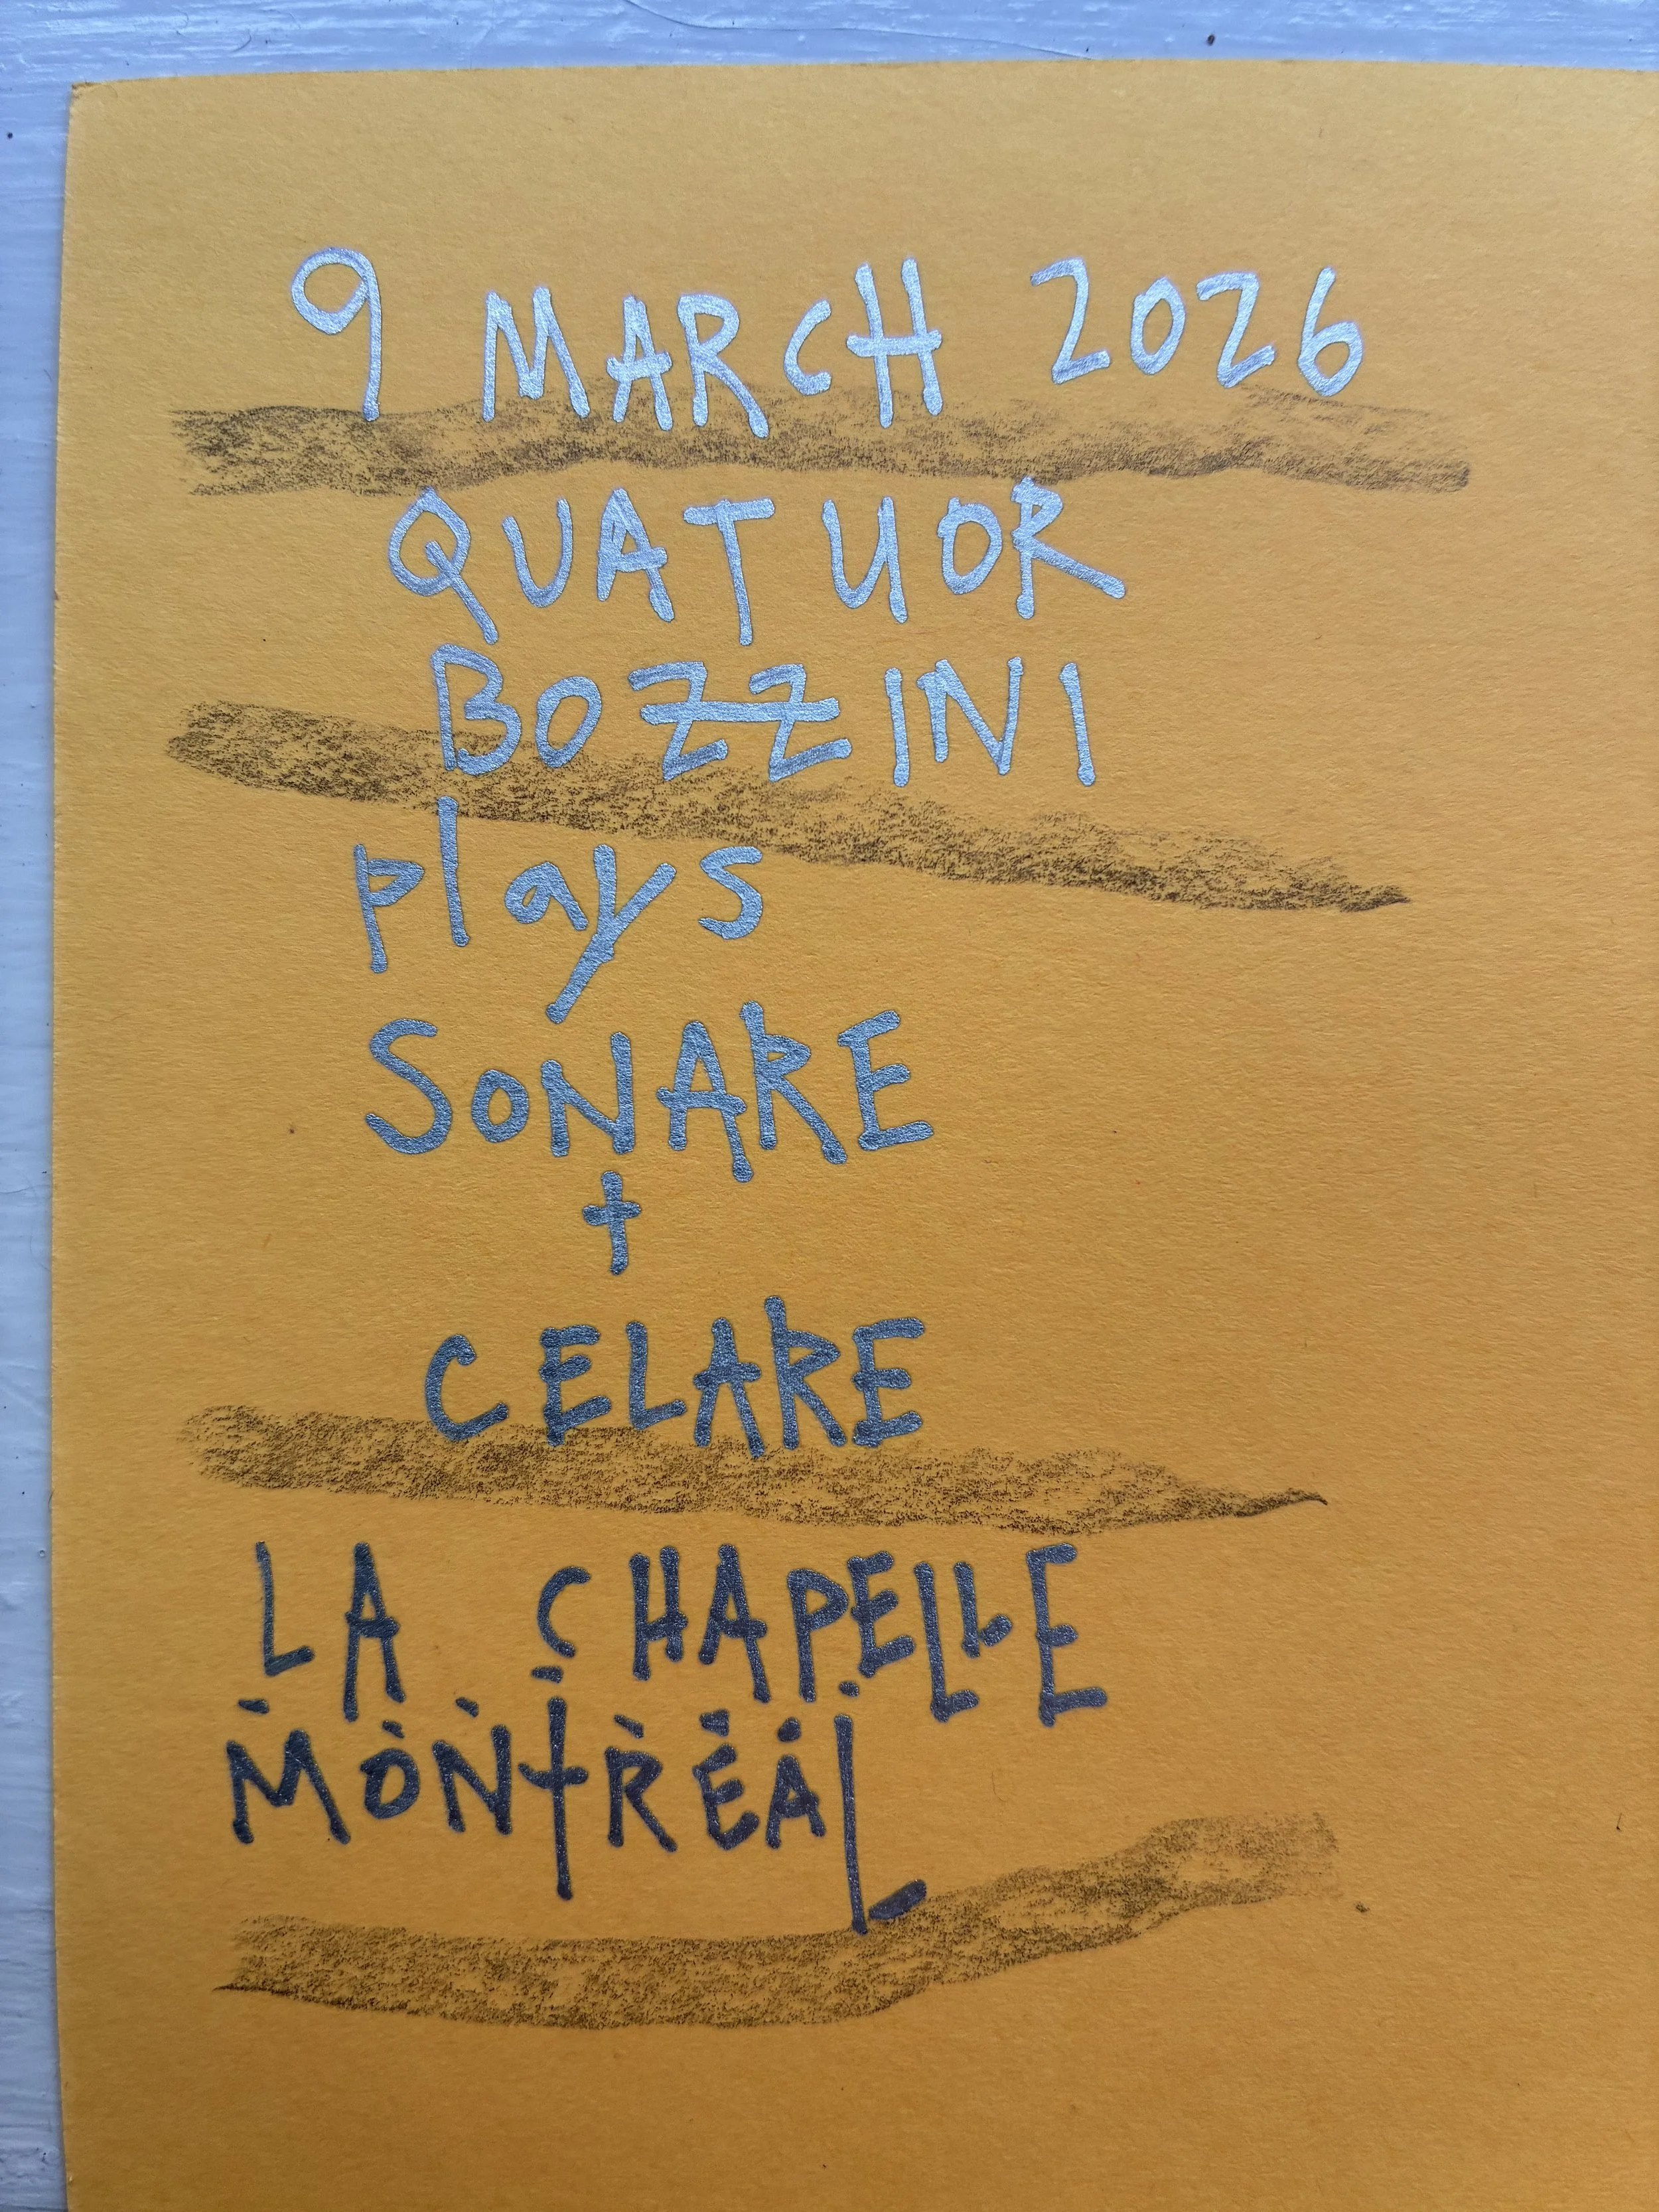 9 MARCH 2026
QUATUOR
BOZZINI
plays
SONARE
+
CELARE
LA CHAPELLE
MONTREAL